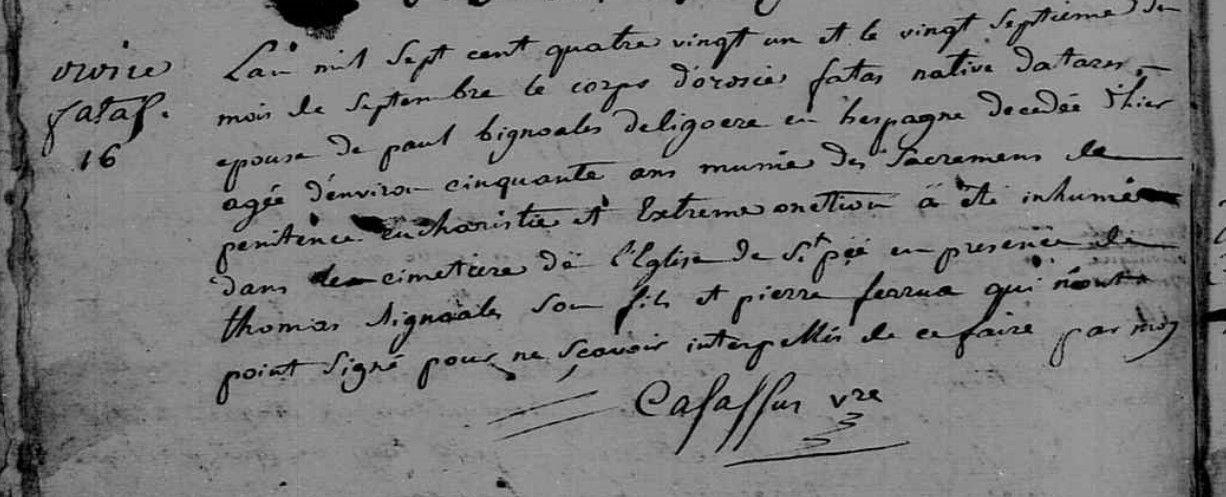 orosie
fatas.
16
L'an mil sept cent quatre vingt un et le vingt septieme du
mois de septembre le corps d'orosie fatas native datares
epouse de paul bignoales deligoere en hespagne decedée d'hier
agée d'environ cinquante ans munie des Sacremens de
penitence Eucharistie et Extreme onction à été inhumée
dans le cimetiere de l'Eglise de St pée en presence de
thomas signoales son fils et pierre ferrua qui n'ont
point signé pour ne sçavoir interpellés de ce faire par moy
Casassus vre